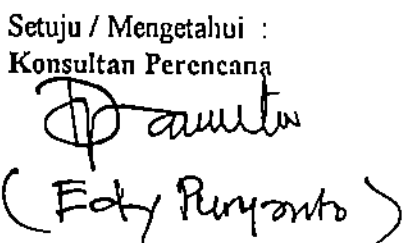 Setuju / Mengetahui :
Konsultan Perencana
( Edy Puryanto )